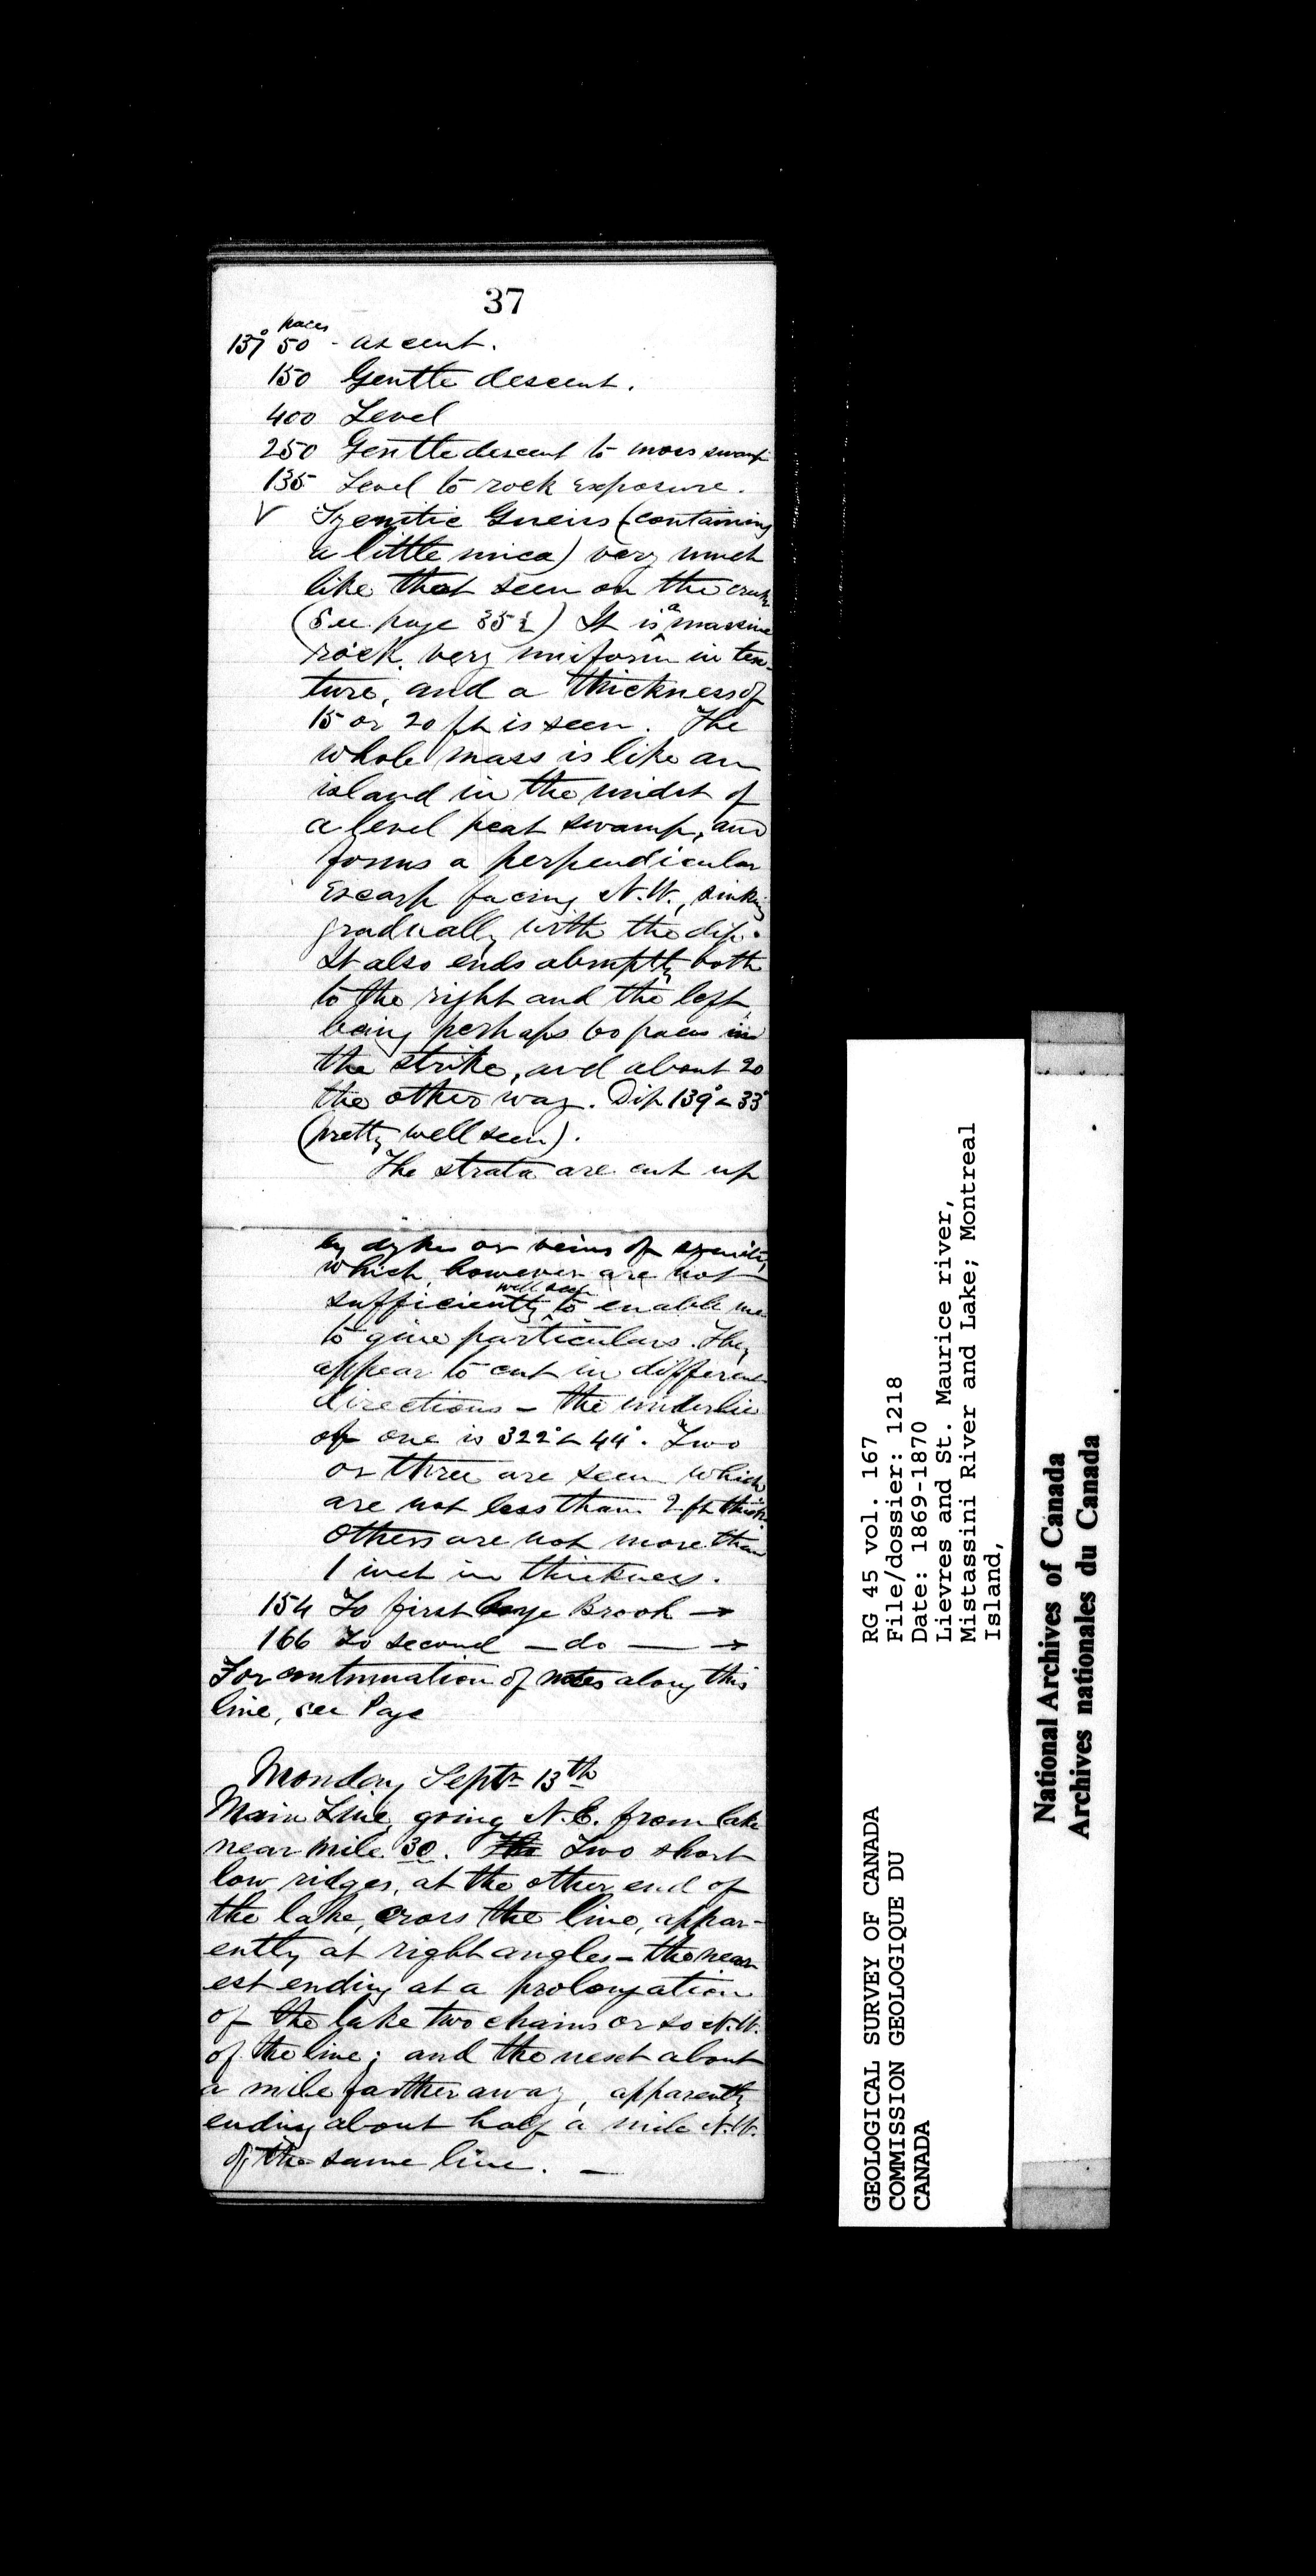 37
paces
137° 50 - ascent.
150 Gentle descent.
400 Level
250 Gentle descent to moss swamp
135 Level to rock exposure.
V Syenitic Gneiss (containing
a little mica) very much
like that seen on the
(See page 35½) It is a massive
rock, very uniform in tex-
ture, and a thickness of
15 or 20 ft is seen. The
whole mass is like an
island in the midst of
a level peat swamp, and
forms a perpendicular
escarp facing N.W., sinking
gradually with the dip.
It also ends abruptly both
to the right and the left,
being perhaps 60 paces in
the strike, and about 20
the other way. Dip 139° < 33°
(pretty well seen).
The strata are cut up
by dykes or veins of syenite,
which however are not
sufficiently well seen to enable me
to give particulars. They
appear to cut in different
directions – the underlie
of one is 322° < 44°. Two
or three are seen which
are not less than 2 ft thick
others are not more than
1 inch in thickness.
154 To first large Brook →
166 To second – do – →
For continuation of notes along this
line, see Page
Monday Septr 13th
Main Line, going N.E. from lake
near mile 30. The Two short
low ridges, at the other end of
the lake, cross the line, appar-
ently at right angles – the near-
est ending at a prolongation
of the lake two chains or so N.W.
of the line; and the next about
a mile farther away, apparently
ending about half a mile N.W.
of the same line. —
GEOLOGICAL SURVEY OF CANADA
COMMISSION GEOLOGIQUE DU
CANADA
RG 45 vol. 167
File/dossier: 1218
Date: 1869-1870
Lievres and St. Maurice river,
Mistassini River and Lake; Montreal
Island,
National Archives of Canada
Archives nationales du Canada